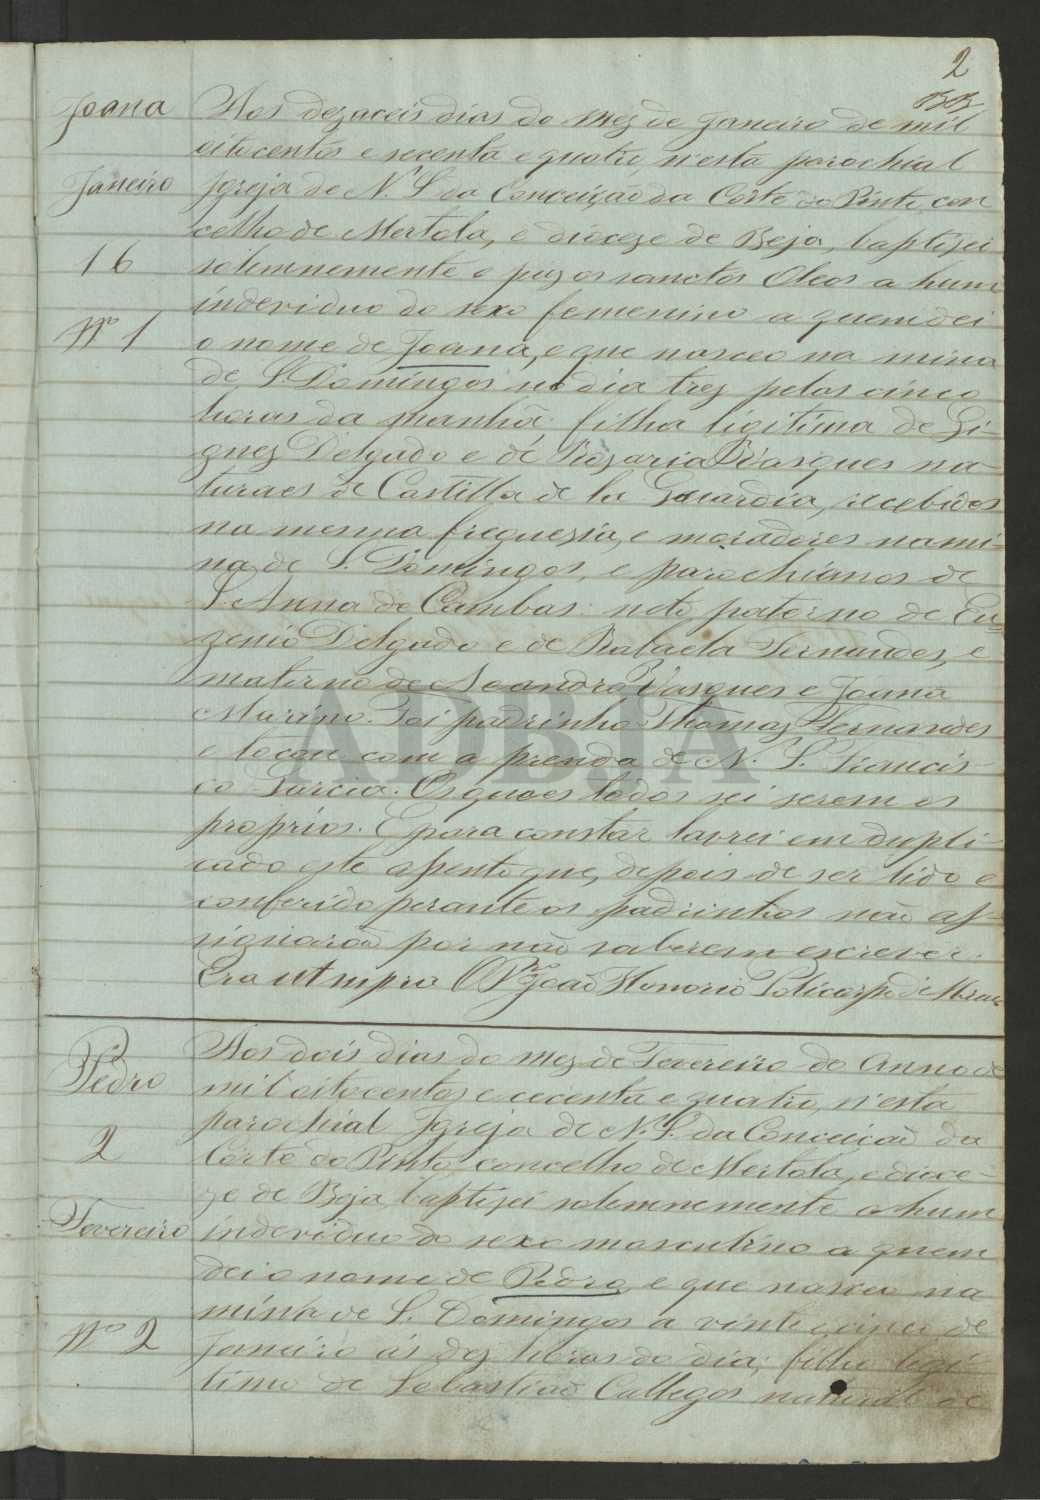 2
Joana
Aos dezaceis dias do mez de Janeiro de mil
oitocentos e secenta e quatro, n'esta parochial
Janeiro
Igreja de N. S. da Conceição da Corte do Pinto, con
celho de Mertola, e dioceze de Beja, baptizei
16
solemnemente e puz os sanctos Oleos a hum
individuo do sexo femenino a quem dei
Nº 1
o nome de Joana, e que nasceo na mina
de S. Domingos no dia trez pelas cinco
horas da manhã: filha ligitima de Gi-
gnez Delgado e de Rozaria Vasques na-
turaes de Castilla de la Guardia, recebidos
na mesma freguezia, e moradores na mi-
na de S. Domingos, e parochianos de
S. Anna de Cambas: neto paterno de Eu-
zenio Delgado e de Rafaela Fernandes, e
materno de Leandro Vasques e Joana
Marino. Foi padrinho Thomaz Fernandes
e tocou com a prenda de N. S. Francis-
co Garcia. Os quaes todos sei serem os
proprios. E para constar lavrei em dupli-
cado este assento que, depois de ser lido e
conferido perante os padrinhos não as-
signarão por não saberem escrever.
Era ut supra O Pr João Honorio Policarpo de
Pedro
Aos dois dias do mez de Fevereiro do Anno de
mil oitocentos e cecenta e quatro, n'esta
parochial Igreja de N. S. da Conceicão da
2
Corte do Pinto concelho de Mertola, e dioce-
ze de Beja, baptizei solemnemente a hum
Fevereiro
individuo do sexo masculino a quem
dei o nome de Pedro, e que nasceu na
mina de S. Domingos a vinte e cinco de
Nº 2
Janeiro ás dez horas do dia; filho legi-
timo de Sebastião Callegos natural de
ADBJA